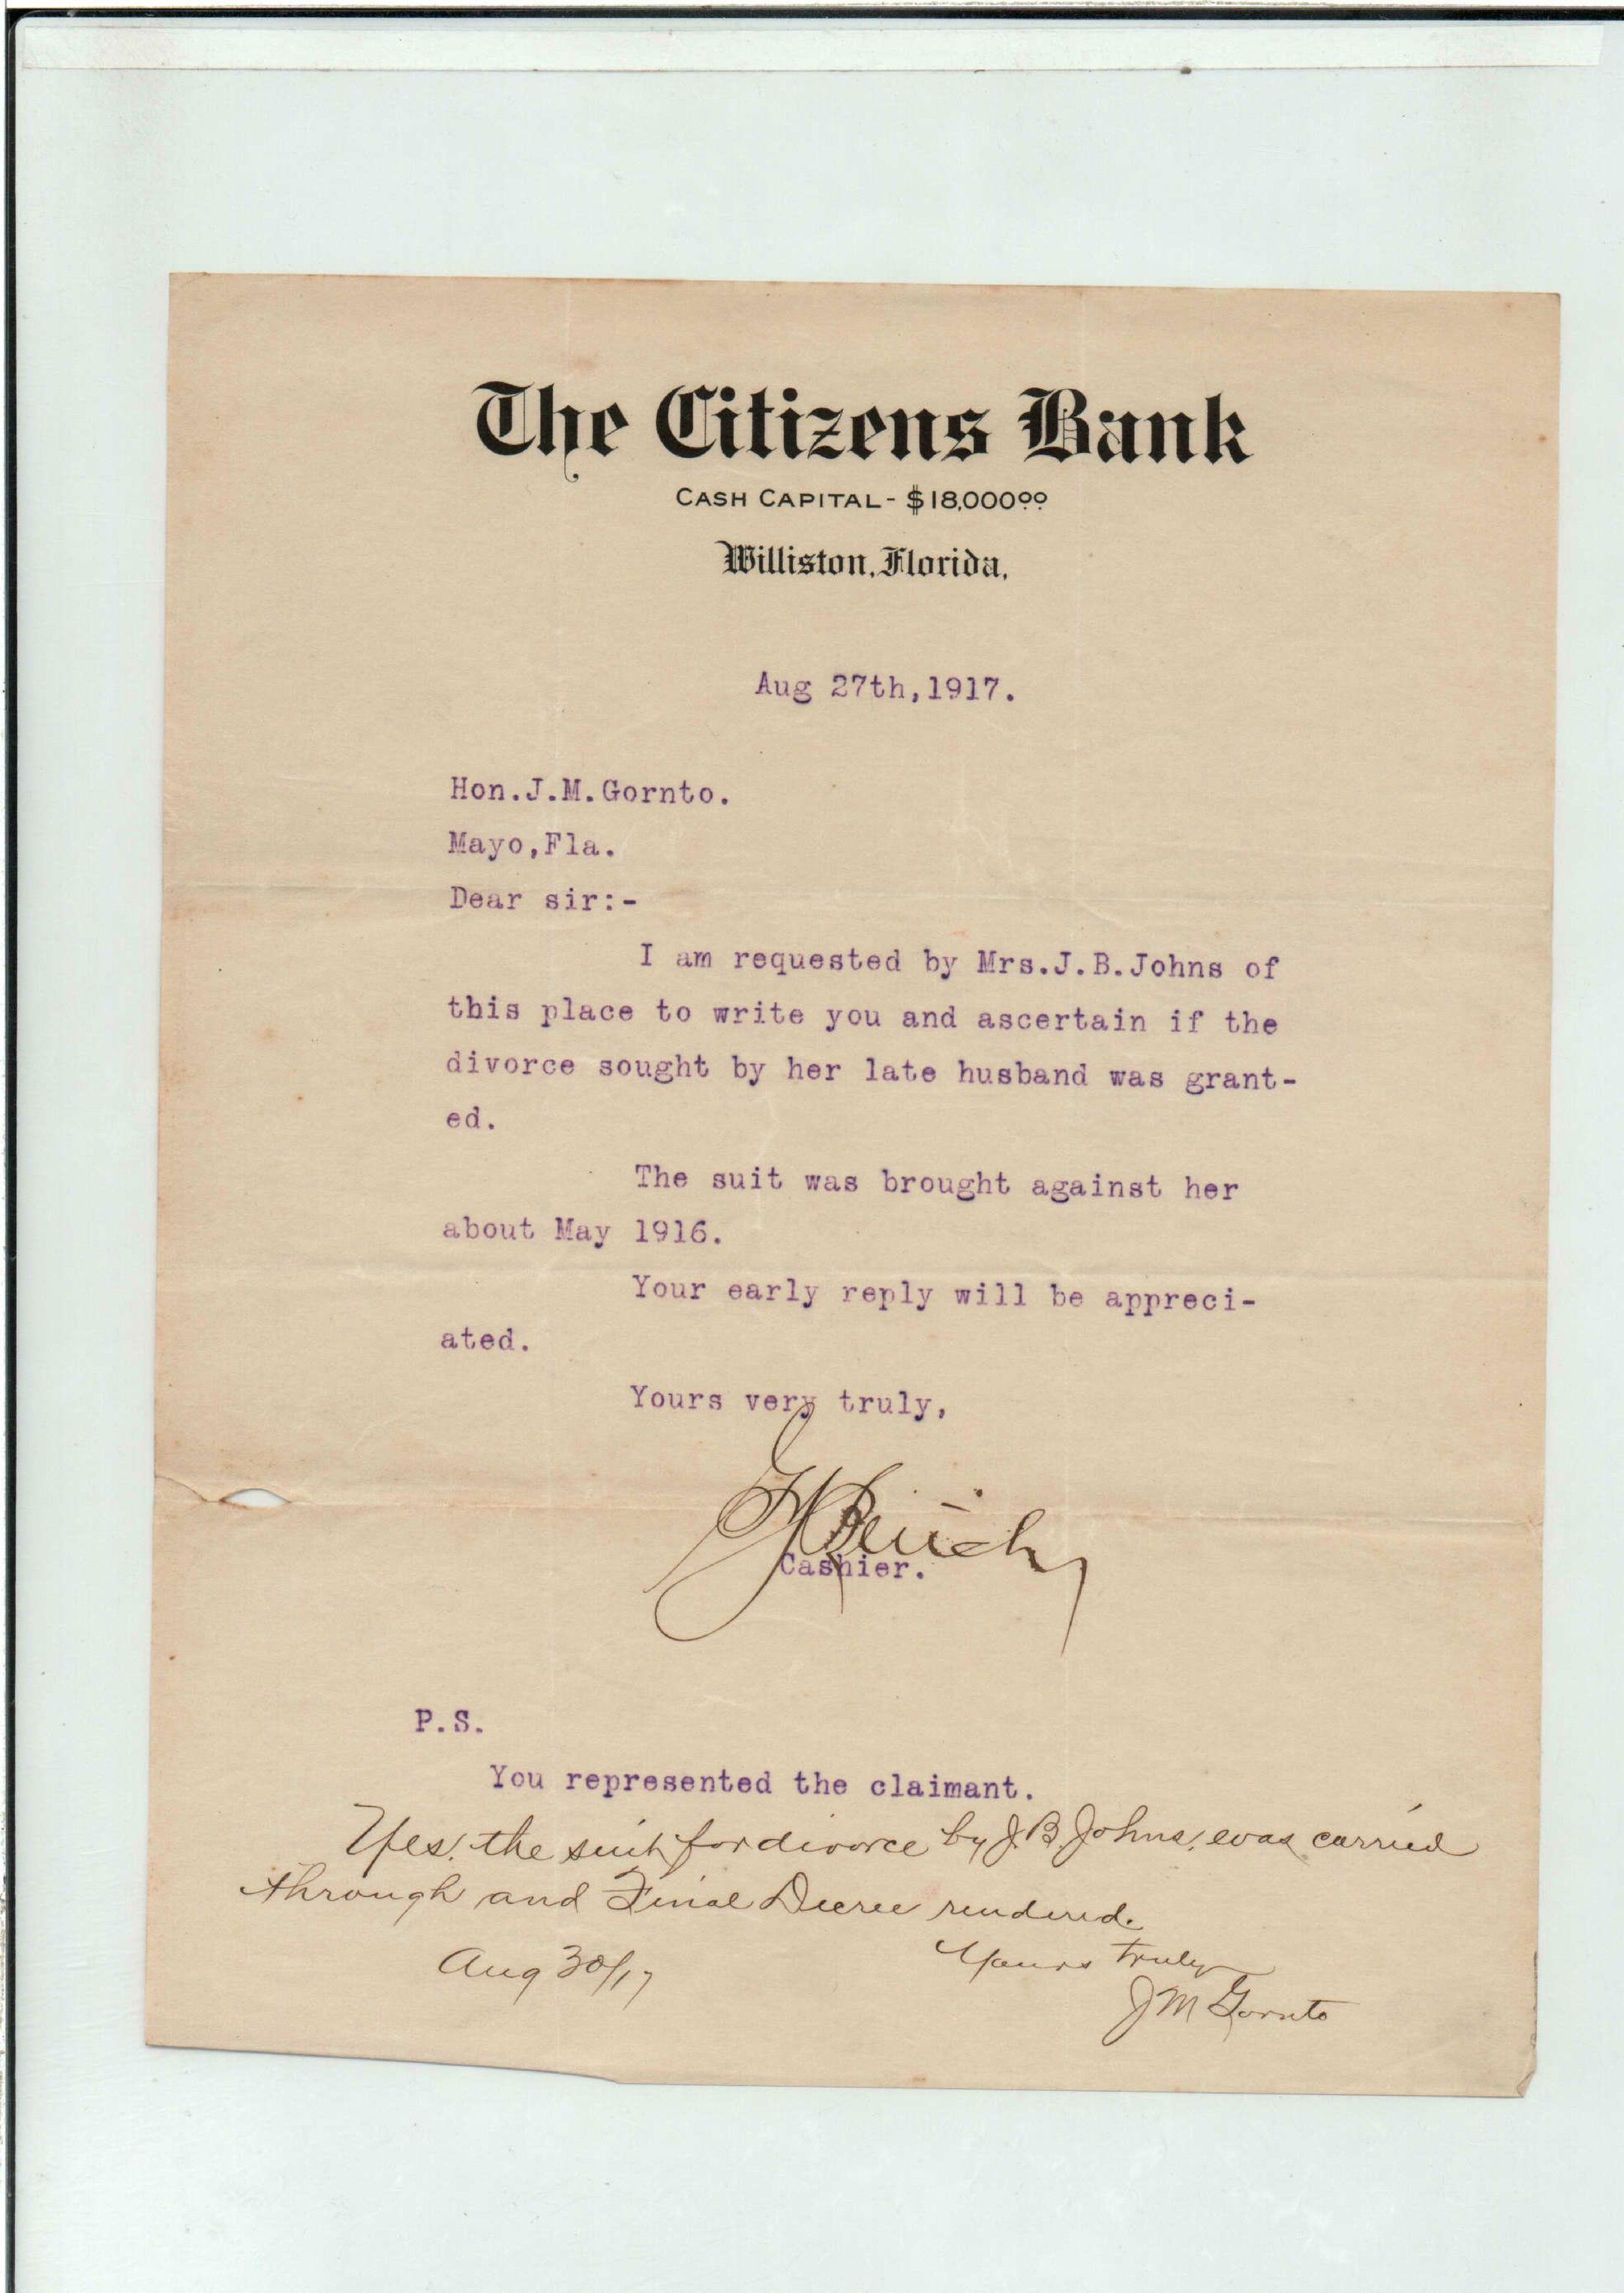 The Citizens Bank
CASH CAPITAL - $18,000.00
Williston, Florida,
Aug 27th,1917.
Hon.J.M.Gornto.
Mayo,Fla.
Dear sir:-
I am requested by Mrs.J.B.Johns of
this place to write you and ascertain if the
divorce sought by her late husband was grant-
ed.
The suit was brought against her
about May 1916.
Your early reply will be appreci-
ated.
Yours very truly,
Cashier.
P.S.
You represented the claimant.
Yes, the suit for divorce by J.B. Johns, was carried
through and Final Decree rendered.
Yours truly
Aug 30/17
J M Gornto